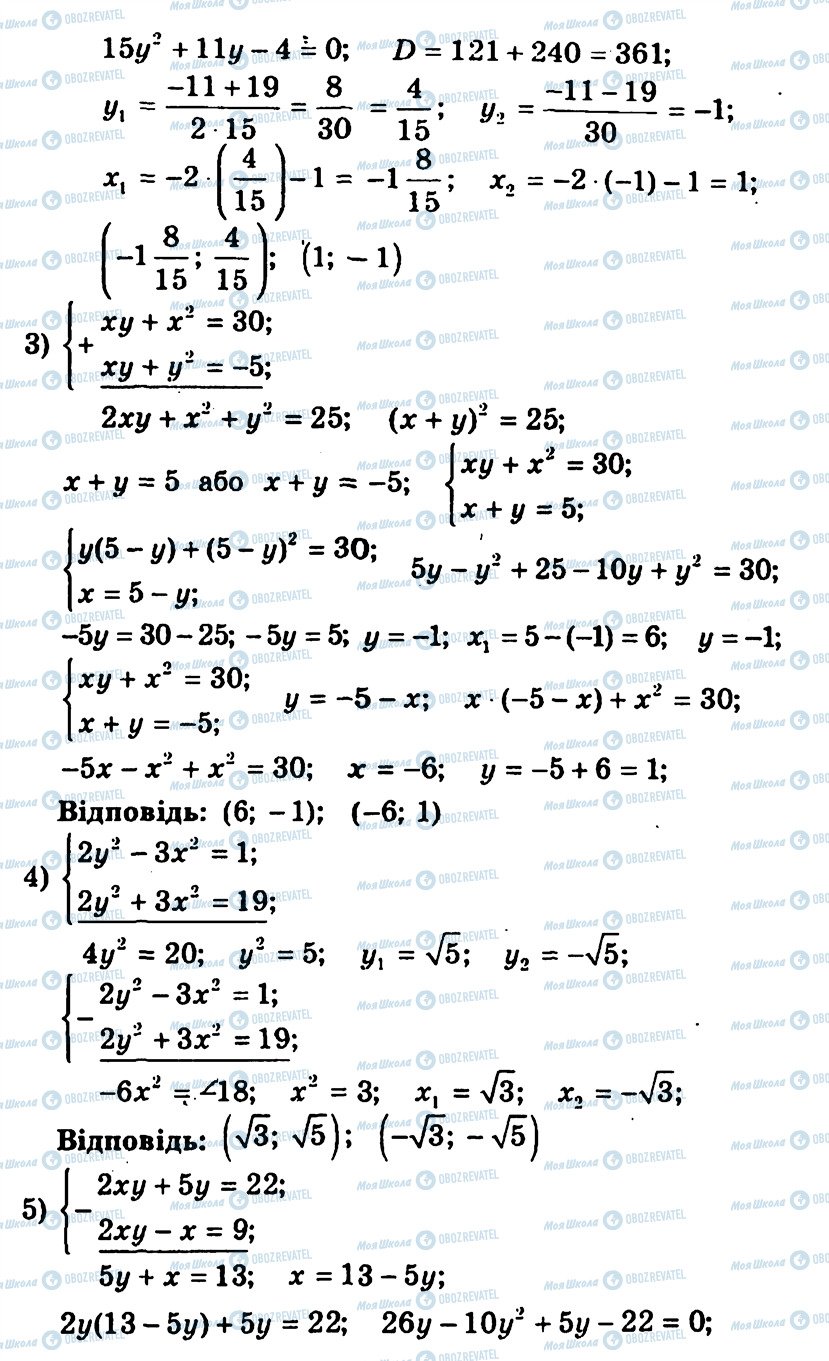 15y² + 11y − 4 = 0; D = 121 + 240 = 361;
y₁ = (−11 + 19)/(2 · 15) = 8/30 = 4/15; y₂ = (−11 − 19)/30 = −1;
x₁ = −2 · (4/15) − 1 = −1 8/15; x₂ = −2 · (−1) − 1 = 1;
(−1 8/15; 4/15); (1; − 1)
3) { + xy + x² = 30;
xy + y² = −5;
2xy + x² + y² = 25; (x + y)² = 25;
x + y = 5 або x + y = −5; { xy + x² = 30;
x + y = 5;
{ y(5 − y) + (5 − y)² = 30;
x = 5 − y;
5y − y² + 25 − 10y + y² = 30;
−5y = 30 − 25; −5y = 5; y = −1; x₁ = 5 − (−1) = 6; y = −1;
{ xy + x² = 30;
x + y = −5;
y = −5 − x; x · (−5 − x) + x² = 30;
−5x − x² + x² = 30; x = −6; y = −5 + 6 = 1;
Відповідь: (6; − 1); (−6; 1)
4) { 2y² − 3x² = 1;
2y² + 3x² = 19;
4y² = 20; y² = 5; y₁ = √5; y₂ = −√5;
{ − 2y² − 3x² = 1;
2y² + 3x² = 19;
−6x² = −18; x² = 3; x₁ = √3; x₂ = −√3;
Відповідь: (√3; √5); (−√3; − √5)
5) { − 2xy + 5y = 22;
2xy − x = 9;
5y + x = 13; x = 13 − 5y;
2y(13 − 5y) + 5y = 22; 26y − 10y² + 5y − 22 = 0;
Моя Школа OBOZREVATEL